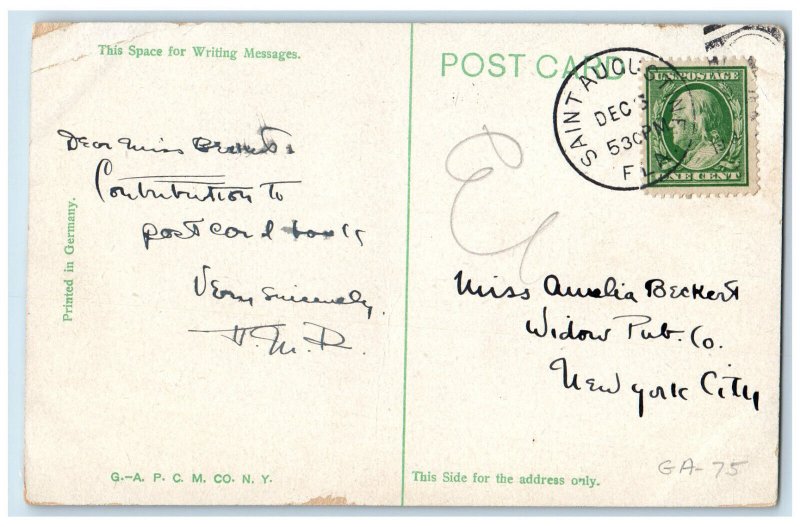 This Space for Writing Messages.
Dear Miss Beckert,
Contribution to
post card book
Very Sincerely,
H. M. R.
Printed in Germany.
G.-A. P. C. M. CO. N. Y.
POST CARD
SAINT AUGUSTINE
DEC 3
530PM
FLA.
U.S. POSTAGE
ONE CENT
Miss Amelia Beckert
Widow Pub. Co.
New York City
This Side for the address only.
GA-75